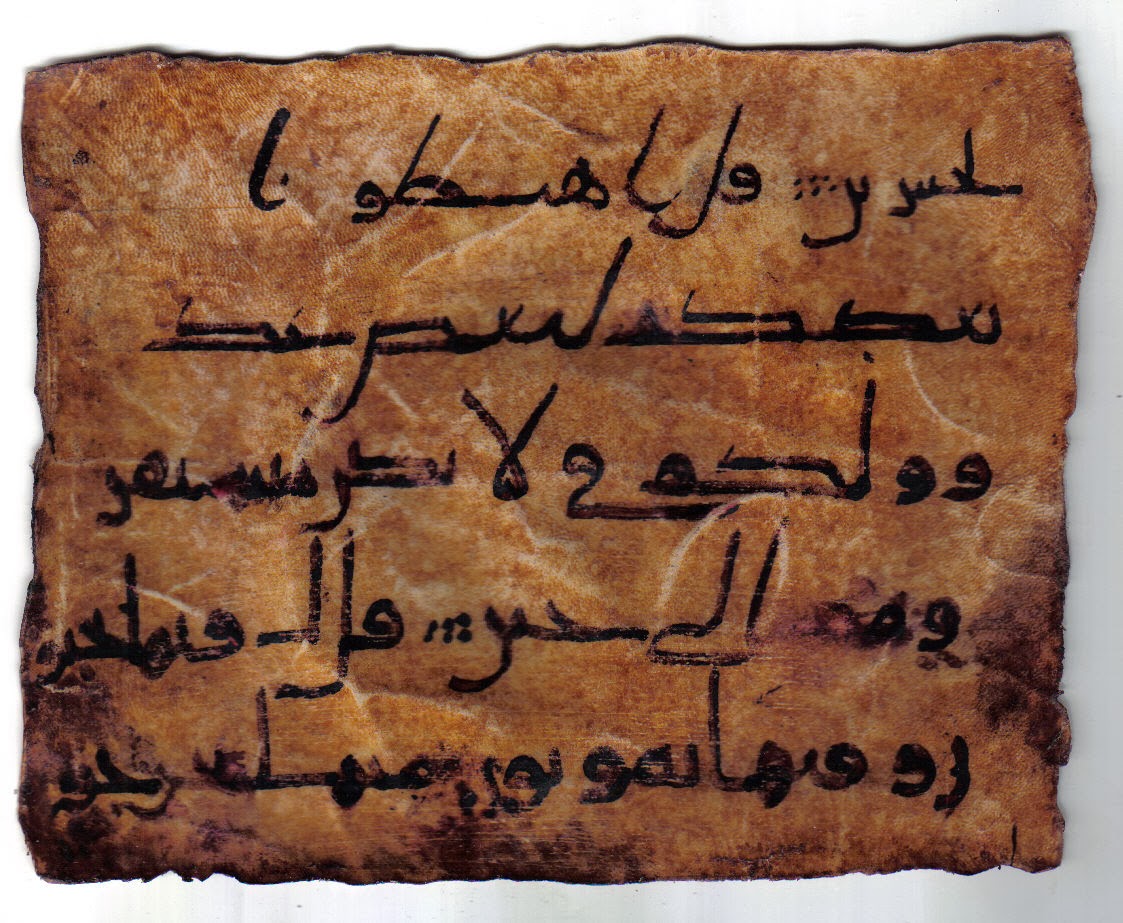 لخسرين قل اهبطوا
بعضكم لبعض عد
و ولكم في الارض مستقر
ومتع الى حين قال فيها تحيو
ن وفيها تموتون ومنها تخرجو